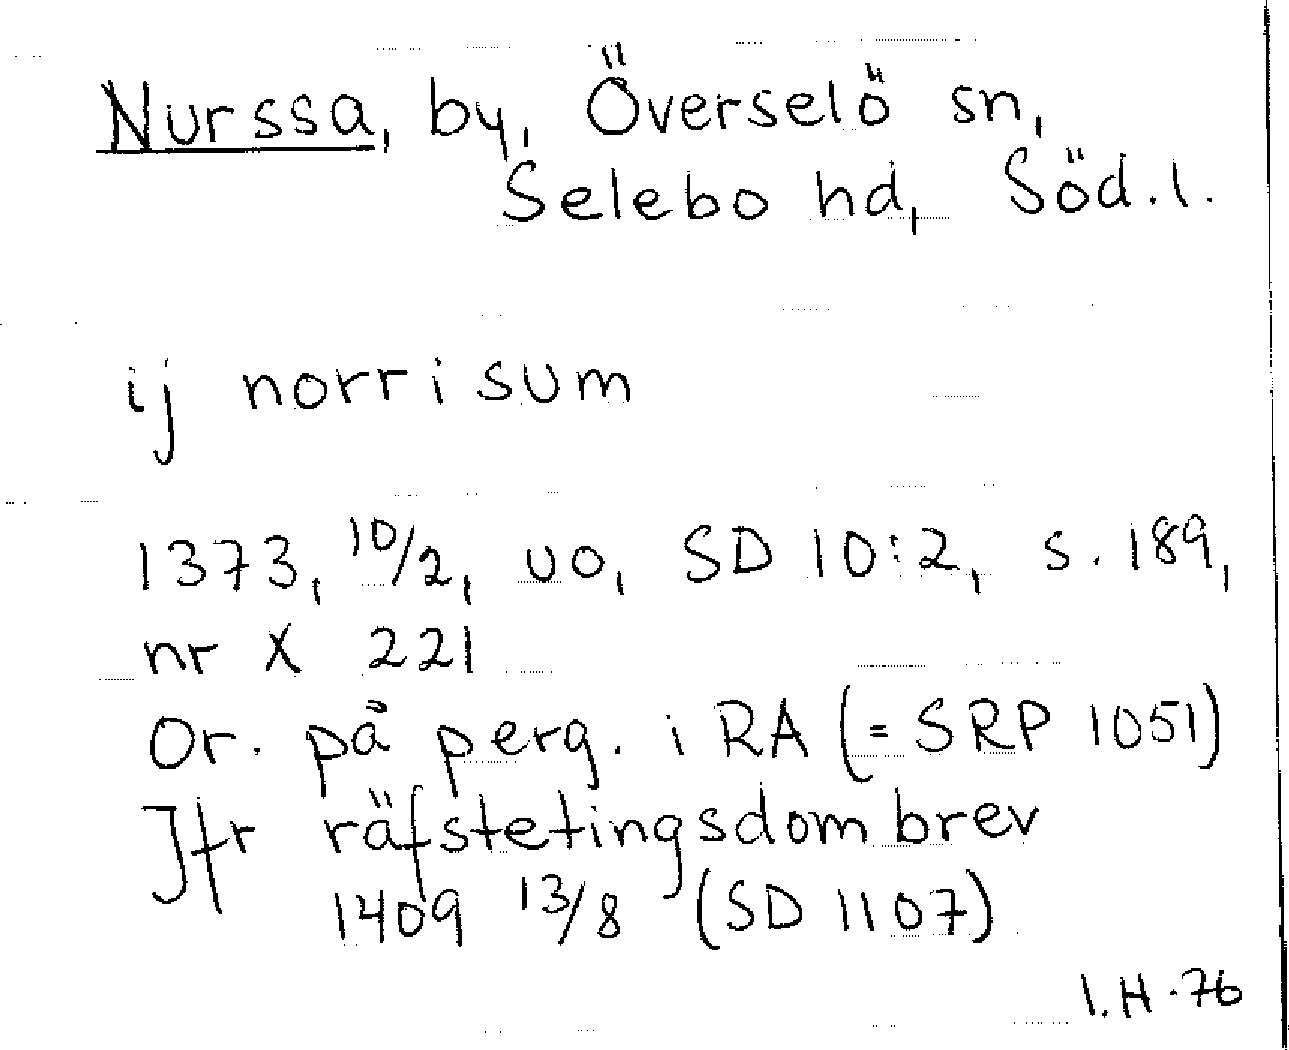 Nurssa, by, Överselö sn,
Selebo hd, Söd.l.
ij norrisum
1373, 10/2, uo, SD 10:2, s. 189,
nr X 221
Or. på perg. i RA (= SRP 1051)
Jfr räfstetingsdombrev
1409 13/8 (SD 1107)
I.H.76